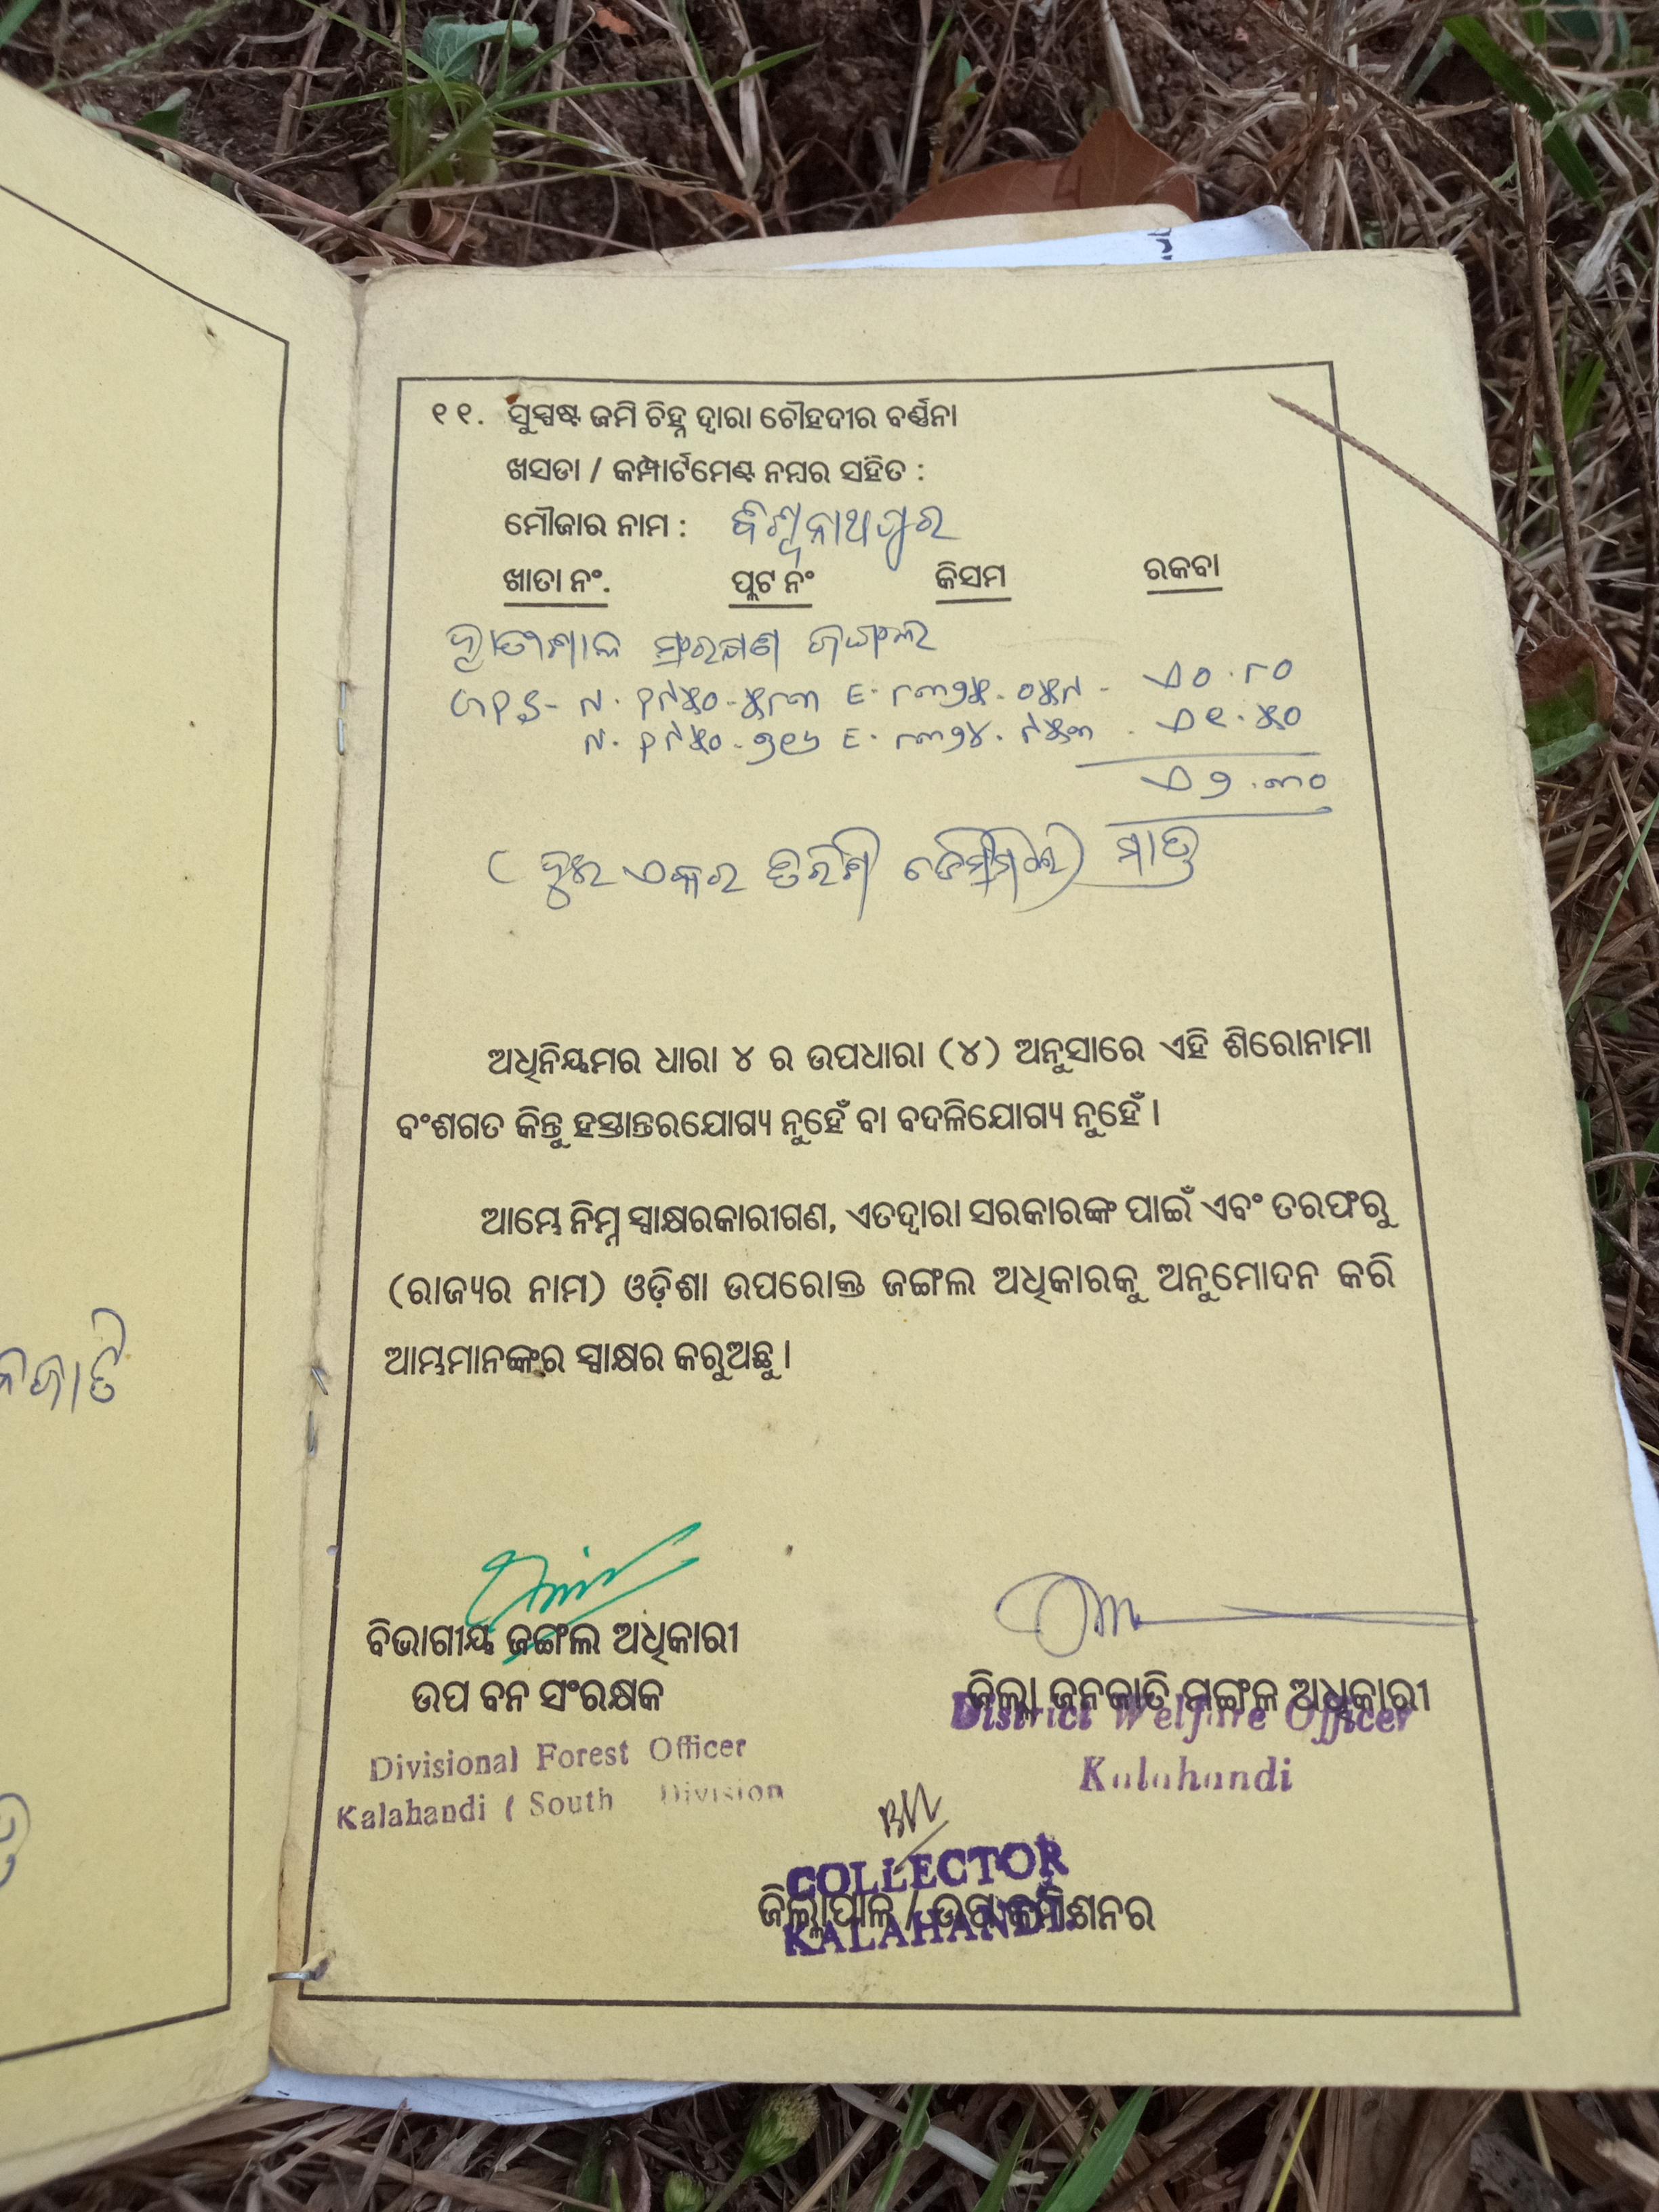 ୧୧. ସୁସ୍ପଷ୍ଟ ଜମି ଚିହ୍ନ ଦ୍ୱାରା ଚୌହଦୀର ବର୍ଣ୍ଣନା
ଖସଡା / କମ୍ପାର୍ଟମେଣ୍ଟ ନମ୍ବର ସହିତ :
ମୌଜାର ନାମ : ବିଶ୍ୱନାଥପୁର
ଖାତା ନଂ. ପ୍ଲଟ ନଂ କିସମ ରକବା
ସଂରକ୍ଷଣ ଜଙ୍ଗଲ
ଏ ୦.୮୦
ଏ ୧.୫୦
ଏ ୨.୩୦
( ଦୁଇ ଏକର ତିରିଶି ଡିସିମିଲି ) ମାତ୍ର
ଅଧିନିୟମର ଧାରା ୪ ର ଉପଧାରା (୪) ଅନୁସାରେ ଏହି ଶିରୋନାମା
ବଂଶଗତ କିନ୍ତୁ ହସ୍ତାନ୍ତରଯୋଗ୍ୟ ନୁହେଁ ବା ବଦଳିଯୋଗ୍ୟ ନୁହେଁ ।
ଆମ୍ଭେ ନିମ୍ନ ସ୍ୱାକ୍ଷରକାରୀଗଣ, ଏତଦ୍ୱାରା ସରକାରଙ୍କ ପାଇଁ ଏବଂ ତରଫରୁ
(ରାଜ୍ୟର ନାମ) ଓଡ଼ିଶା ଉପରୋକ୍ତ ଜଙ୍ଗଲ ଅଧିକାରକୁ ଅନୁମୋଦନ କରି
ଆମ୍ଭମାନଙ୍କର ସ୍ୱାକ୍ଷର କରୁଅଛୁ ।
ବିଭାଗୀୟ ଜଙ୍ଗଲ ଅଧିକାରୀ
ଉପ ବନ ସଂରକ୍ଷକ
Divisional Forest Officer
Kalahandi ( South Division
ଜିଲ୍ଲା ଜନଜାତି ମଙ୍ଗଳ ଅଧିକାରୀ
District Welfare Officer
Kalahandi
COLLECTOR
ଜିଲ୍ଲାପାଳ / ଉପ କମିଶନର
KALAHANDI